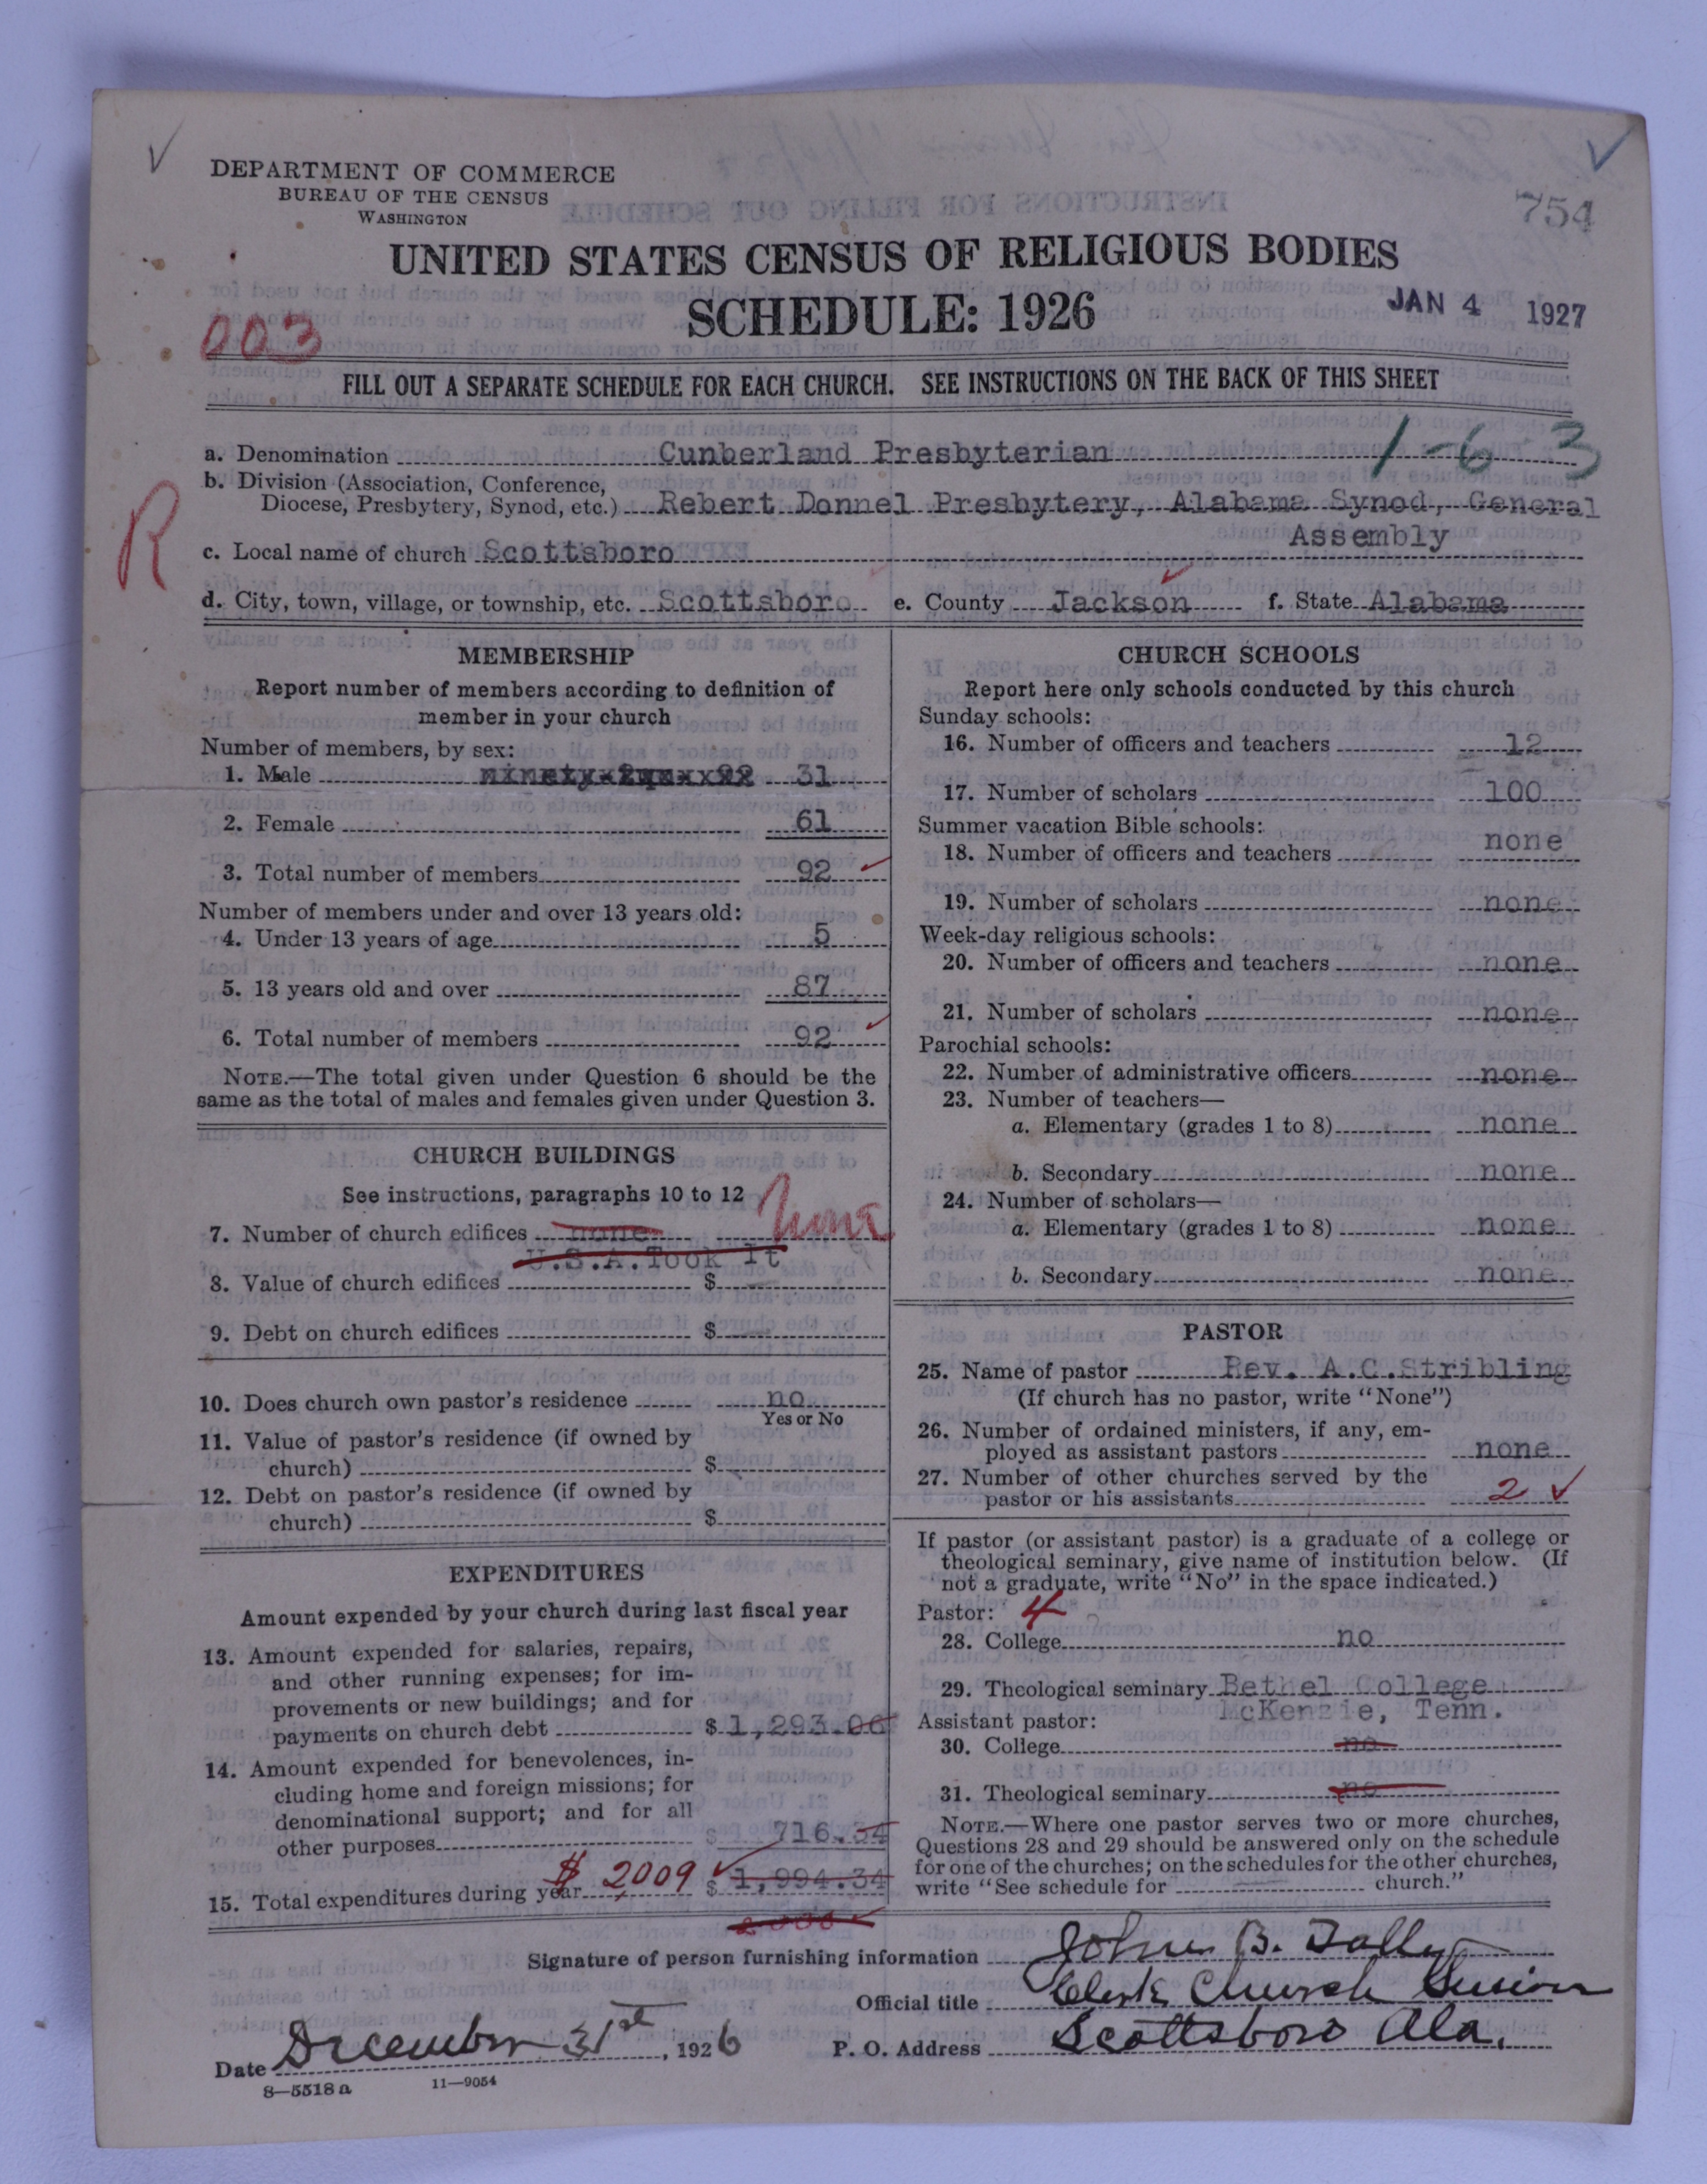 DEPARTMENT OF COMMERCE
BUREAU OF THE CENSUS
WASHINGTON
754
UNITED STATES CENSUS OF RELIGIOUS BODIES
SCHEDULE: 1926
JAN 4 1927
003
FILL OUT A SEPARATE SCHEDULE FOR EACH CHURCH. SEE INSTRUCTIONS ON THE BACK OF THIS SHEET
a. Denomination Cunberland Presbyterian 1-6 3
b. Division (Association, Conference,
Diocese, Presbytery, Synod, etc.) Rebert Donnel Presbytery, Alabama Synod, General
Assembly
R
c. Local name of church Scottsboro
d. City, town, village, or township, etc. Scottsboro e. County Jackson f. State Alabama
MEMBERSHIP
Report number of members according to definition of
member in your church
Number of members, by sex:
1. Male 31
2. Female 61
3. Total number of members 92
Number of members under and over 13 years old:
4. Under 13 years of age 5
5. 13 years old and over 87
6. Total number of members 92
NOTE.—The total given under Question 6 should be the
same as the total of males and females given under Question 3.
CHURCH BUILDINGS
See instructions, paragraphs 10 to 12
7. Number of church edifices none None
U.S.A.Took It
8. Value of church edifices $
9. Debt on church edifices $
10. Does church own pastor's residence no
Yes or No
11. Value of pastor's residence (if owned by
church) $
12. Debt on pastor's residence (if owned by
church) $
EXPENDITURES
Amount expended by your church during last fiscal year
13. Amount expended for salaries, repairs,
and other running expenses; for im-
provements or new buildings; and for
payments on church debt $ 1,293.06
14. Amount expended for benevolences, in-
cluding home and foreign missions; for
denominational support; and for all
other purposes $ 716.34
15. Total expenditures during year $ 2009 $ 1,994.34
CHURCH SCHOOLS
Report here only schools conducted by this church
Sunday schools:
16. Number of officers and teachers 12
17. Number of scholars 100
Summer vacation Bible schools:
18. Number of officers and teachers none
19. Number of scholars none
Week-day religious schools:
20. Number of officers and teachers none
21. Number of scholars none
Parochial schools:
22. Number of administrative officers none
23. Number of teachers—
a. Elementary (grades 1 to 8) none
b. Secondary none
24. Number of scholars—
a. Elementary (grades 1 to 8) none
b. Secondary none
PASTOR
25. Name of pastor Rev. A.C.Stribling
(If church has no pastor, write "None")
26. Number of ordained ministers, if any, em-
ployed as assistant pastors none
27. Number of other churches served by the
pastor or his assistants 2
If pastor (or assistant pastor) is a graduate of a college or
theological seminary, give name of institution below. (If
not a graduate, write "No" in the space indicated.)
Pastor: 4
28. College no
29. Theological seminary Bethel College
McKenzie, Tenn.
Assistant pastor:
30. College no
31. Theological seminary no
NOTE.—Where one pastor serves two or more churches,
Questions 28 and 29 should be answered only on the schedule
for one of the churches; on the schedules for the other churches,
write "See schedule for church."
Signature of person furnishing information John B. Tally
Official title Clerk Church Session
Date December 31st, 1926 P. O. Address Scottsboro Ala.
8—5518 a 11—9054